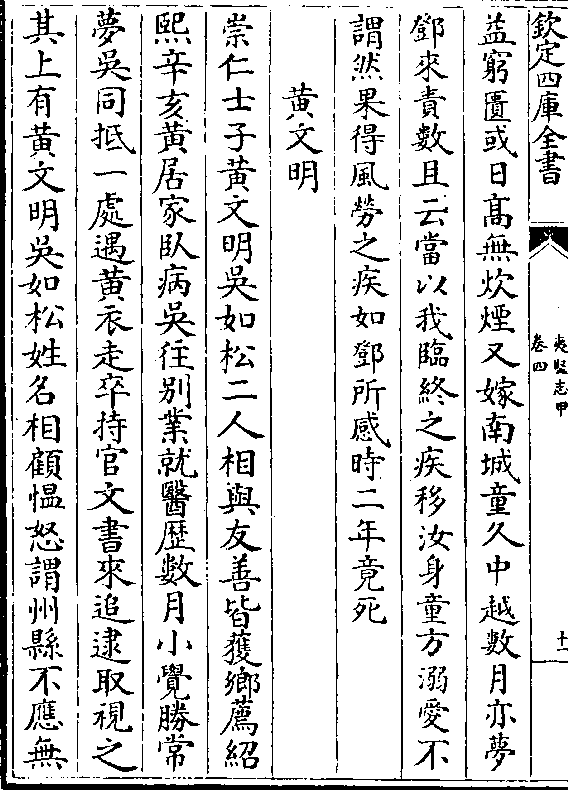 欽定四庫全書
夷堅志甲
卷四
十一
益窮匱或日髙無炊煙又嫁南城童久中越數月亦夢
鄧來責數且云當以我臨終之疾移汝身童方溺愛不
謂然果得風勞之疾如鄧所感時二年竟死
黄文明
崇仁士子黄文明吳如松二人相與友善皆獲鄉薦紹
熙辛亥黄居家臥病吳往别業就醫歴數月小覺勝常
夢吳同抵一處遇黄衣走卒持官文書來追逮取視之
其上有黄文明吳如松姓名相顧愠怒謂州縣不應無